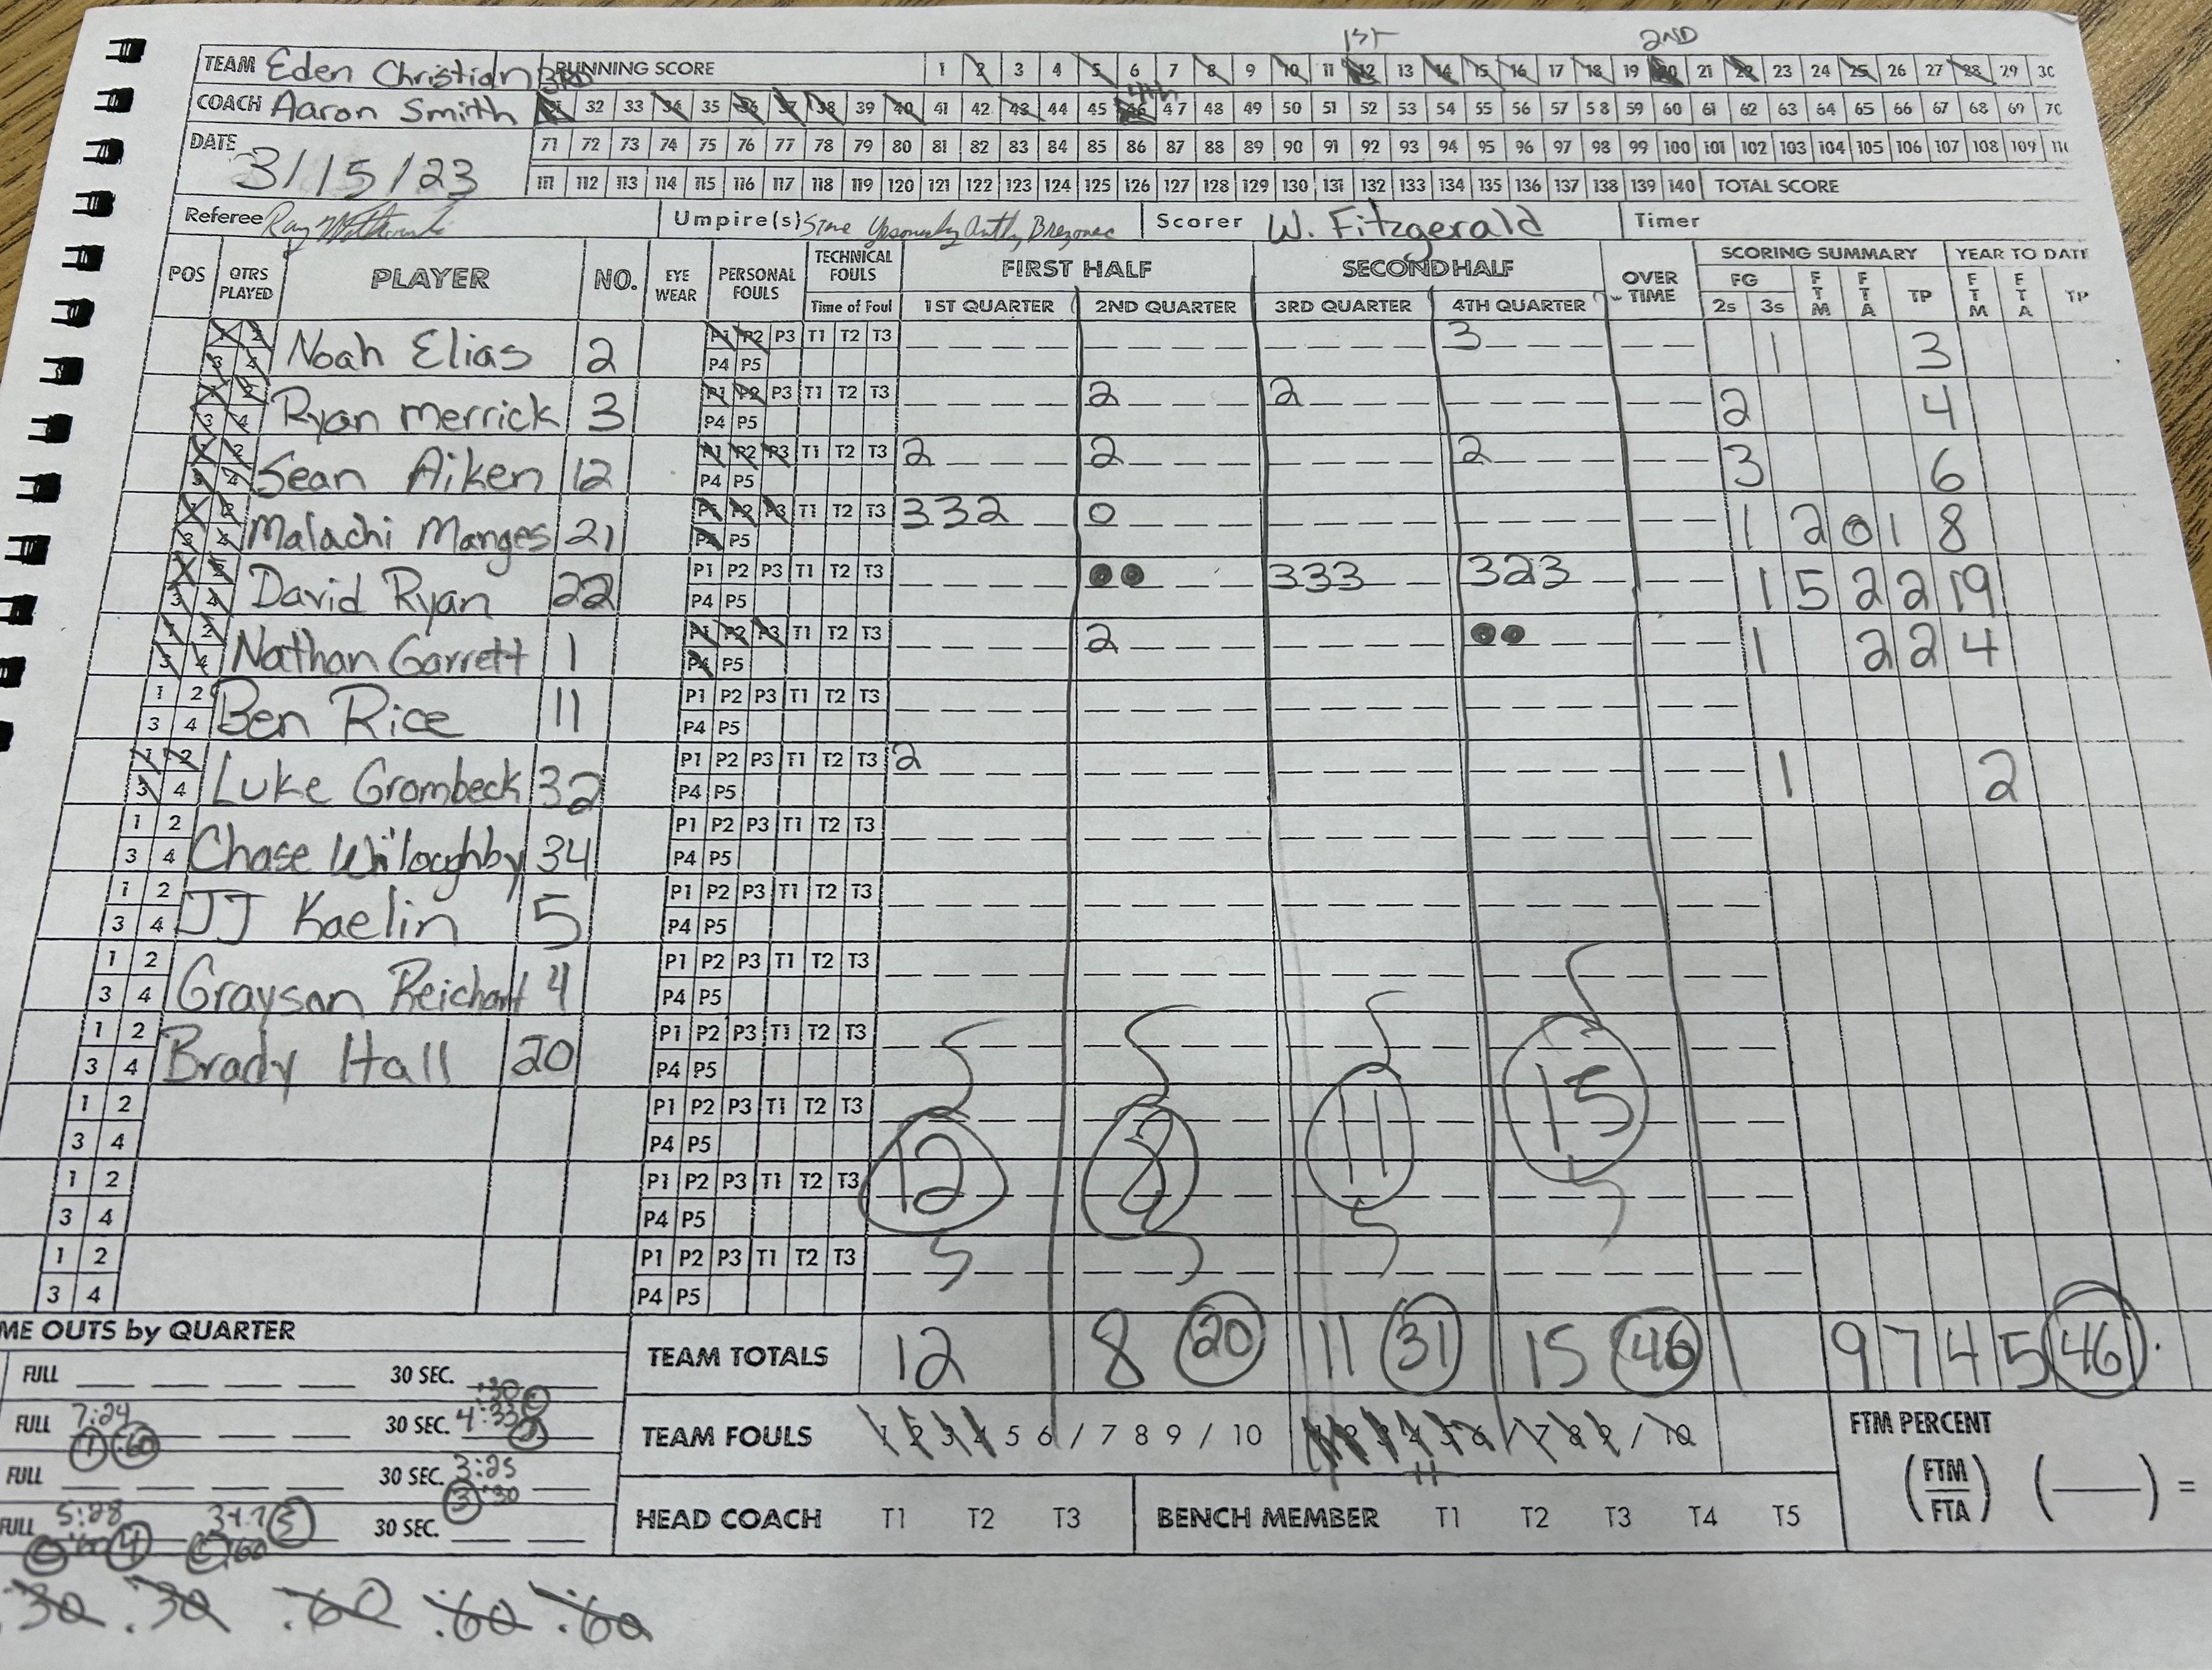 1ST 2ND
TEAM Eden Christian 3RD RUNNING SCORE 1 2 3 4 5 6 7 8 9 10 11 12 13 14 15 16 17 18 19 20 21 22 23 24 25 26 27 28 29 30
4th
COACH Aaron Smith 31 32 33 34 35 36 37 38 39 40 41 42 43 44 45 46 47 48 49 50 51 52 53 54 55 56 57 58 59 60 61 62 63 64 65 66 67 68 69 70
DATE 3/15/23 71 72 73 74 75 76 77 78 79 80 81 82 83 84 85 86 87 88 89 90 91 92 93 94 95 96 97 98 99 100 101 102 103 104 105 106 107 108 109 110
111 112 113 114 115 116 117 118 119 120 121 122 123 124 125 126 127 128 129 130 131 132 133 134 135 136 137 138 139 140 TOTAL SCORE
Referee Ray Umpire(s) Scorer W. Fitzgerald Timer
POS QTRS PLAYED PLAYER NO. EYE WEAR PERSONAL FOULS TECHNICAL FOULS Time of Foul FIRST HALF 1ST QUARTER 2ND QUARTER SECOND HALF 3RD QUARTER 4TH QUARTER OVER TIME SCORING SUMMARY FG 2s 3s FTM FTA TP YEAR TO DATE FTM FTA TP
1 2 Noah Elias 2 P1 P2 P3 T1 T2 T3 3 1 3
3 4 P4 P5
1 2 Ryan Merrick 3 P1 P2 P3 T1 T2 T3 2 2 2 4
3 4 P4 P5
1 2 Sean Aiken 12 P1 P2 P3 T1 T2 T3 2 2 2 3 6
3 4 P4 P5
1 2 Malachi Manges 21 P1 P2 P3 T1 T2 T3 332 0 1 2 0 1 8
3 4 P4 P5
1 2 David Ryan 22 P1 P2 P3 T1 T2 T3 333 323 1 5 2 2 19
3 4 P4 P5
1 2 Nathan Garrett 1 P1 P2 P3 T1 T2 T3 2 1 2 2 4
3 4 P4 P5
1 2 Ben Rice 11 P1 P2 P3 T1 T2 T3
3 4 P4 P5
1 2 Luke Grombeck 32 P1 P2 P3 T1 T2 T3 2 1 2
3 4 P4 P5
1 2 Chase Willoughby 34 P1 P2 P3 T1 T2 T3
3 4 P4 P5
1 2 JJ Kaelin 5 P1 P2 P3 T1 T2 T3
3 4 P4 P5
1 2 Grayson Reichart 4 P1 P2 P3 T1 T2 T3
3 4 P4 P5
1 2 Brady Hall 20 P1 P2 P3 T1 T2 T3
3 4 P4 P5
1 2 P1 P2 P3 T1 T2 T3 12 8 11 15
3 4 P4 P5
1 2 P1 P2 P3 T1 T2 T3
3 4 P4 P5
1 2 P1 P2 P3 T1 T2 T3
3 4 P4 P5
ME OUTS by QUARTER TEAM TOTALS 12 8 20 11 31 15 46 9 7 4 5 46
FULL 30 SEC. :30
FULL 7:24 1 :60 30 SEC. 4:33 2 TEAM FOULS 1 2 3 4 5 6 / 7 8 9 / 10 1 2 3 4 5 6 / 7 8 9 / 10 11
FTM PERCENT
FULL 30 SEC. 3:25 3 :30 (FTM/FTA) ( ) =
FULL 5:28 :60 4 34.7 5 :60 30 SEC. HEAD COACH T1 T2 T3 BENCH MEMBER T1 T2 T3 T4 T5
:30 :30 :60 :60 :60